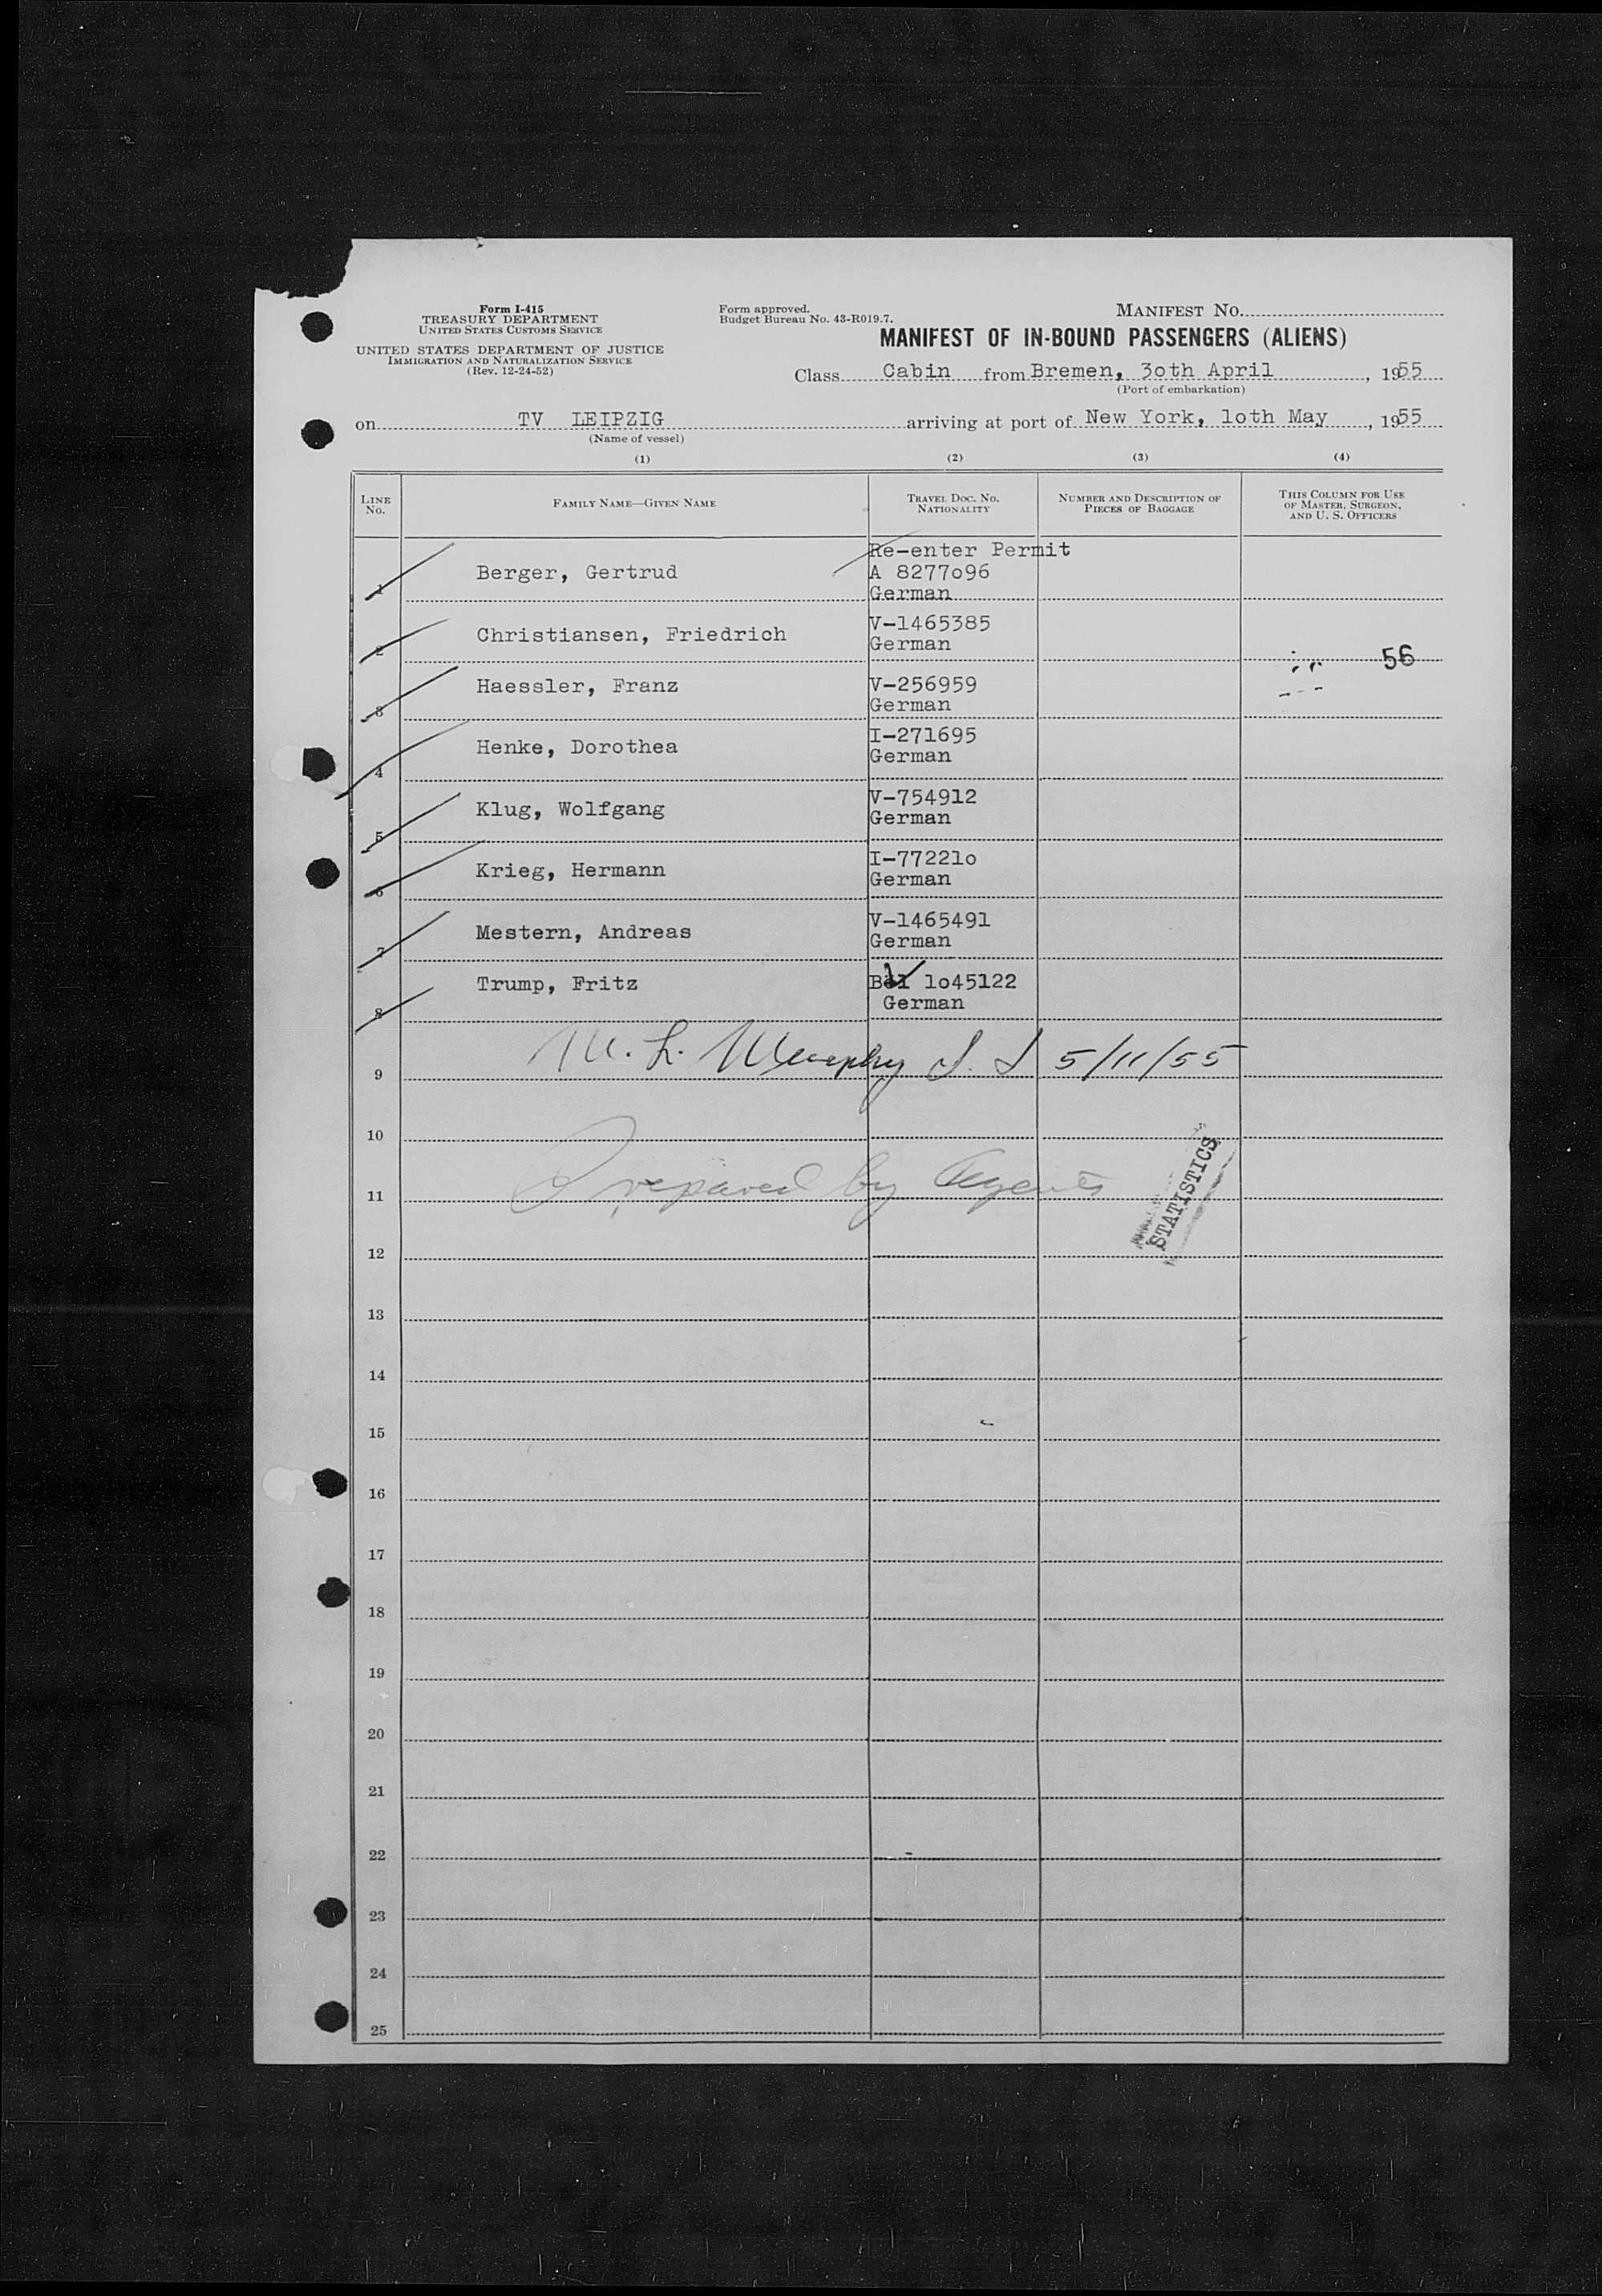 Form I-415
TREASURY DEPARTMENT
UNITED STATES CUSTOMS SERVICE
UNITED STATES DEPARTMENT OF JUSTICE
IMMIGRATION AND NATURALIZATION SERVICE
(Rev. 12-24-52)
Form approved.
Budget Bureau No. 43-R019.7.
MANIFEST No.
MANIFEST OF IN-BOUND PASSENGERS (ALIENS)
Class Cabin from Bremen, 3oth April, 1955
(Port of embarkation)
on TV LEIPZIG arriving at port of New York, 1oth May, 1955
(Name of vessel)
(1) (2) (3) (4)
LINE No. FAMILY NAME—GIVEN NAME TRAVEL DOC. No. NATIONALITY NUMBER AND DESCRIPTION OF PIECES OF BAGGAGE THIS COLUMN FOR USE OF MASTER, SURGEON, AND U. S. OFFICERS
Re-enter Permit
1 Berger, Gertrud A 8277o96
German
2 Christiansen, Friedrich V-1465385
German
56
3 Haessler, Franz V-256959
German
4 Henke, Dorothea I-271695
German
5 Klug, Wolfgang V-754912
German
6 Krieg, Hermann I-77221o
German
7 Mestern, Andreas V-1465491
German
8 Trump, Fritz 1o45122
German
9 M. L. Murphy 5/11/55
10
11 Prepared by Agents
STATISTICS
12
13
14
15
16
17
18
19
20
21
22
23
24
25